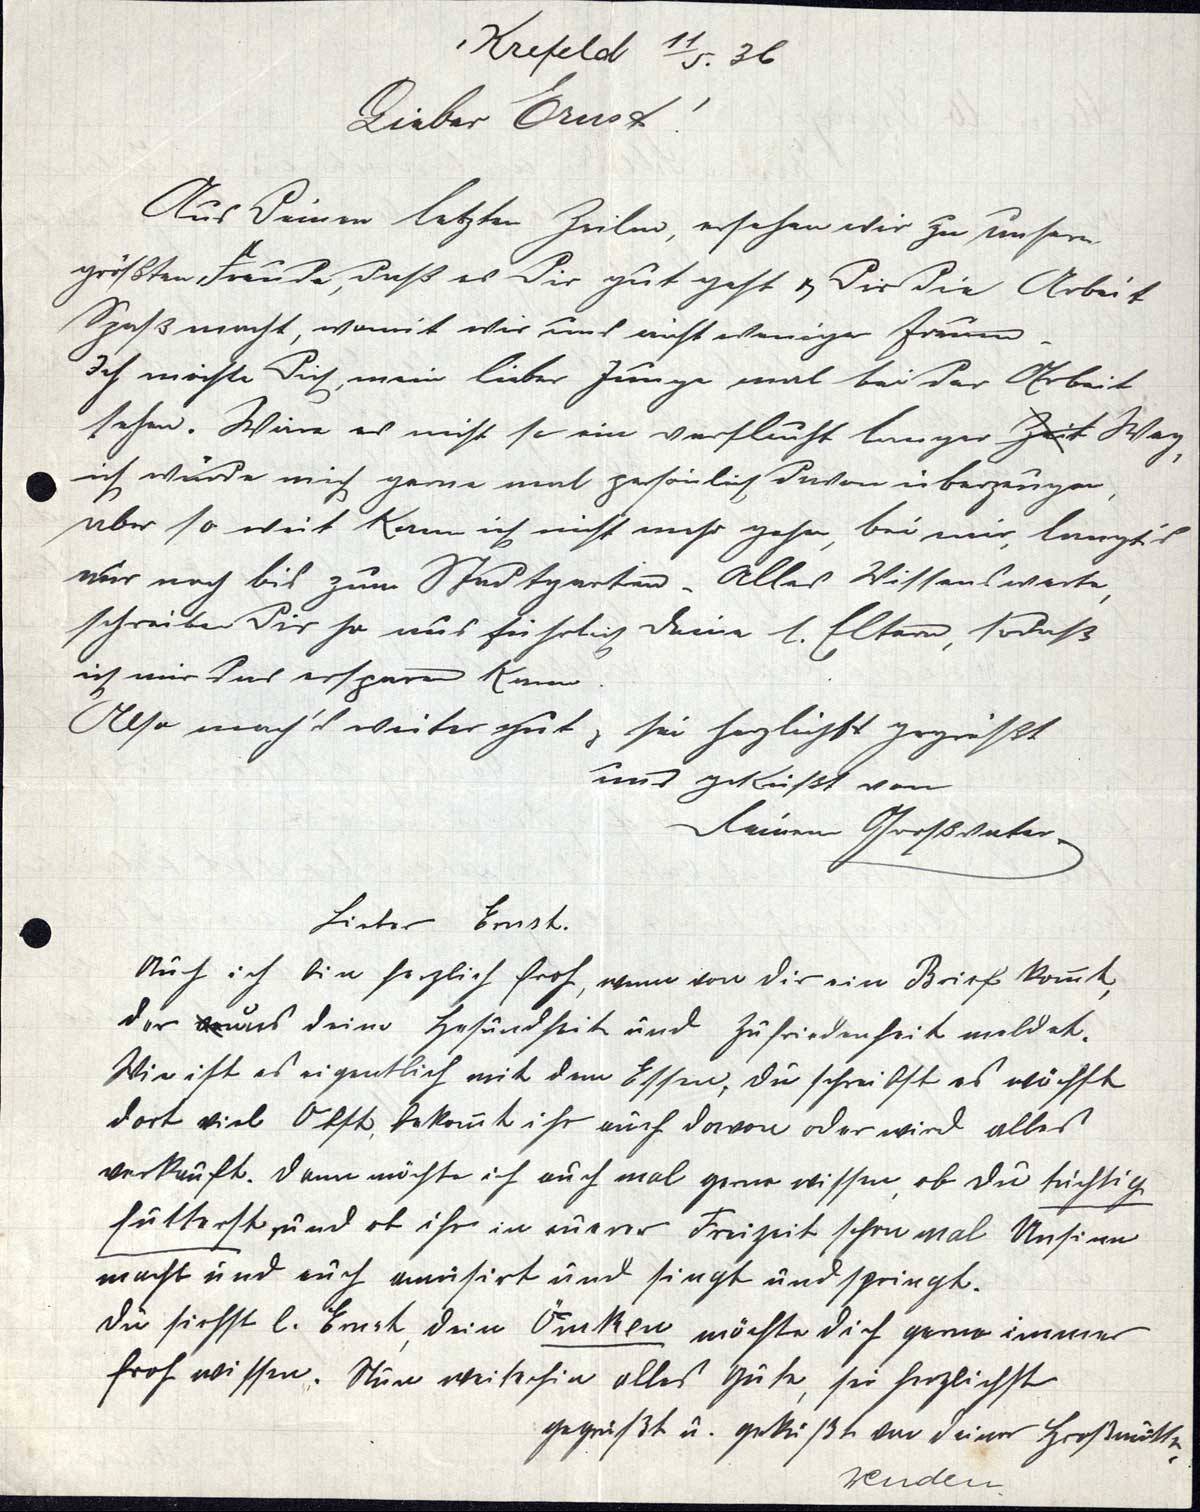 Krefeld 11/5. 36
Lieber Ernst!
Aus Deinen letzten Zeilen, ersehen wir zu unserer
größten Freude, daß es Dir gut geht & Dir die Arbeit
Spaß macht, womit wir uns nicht weniger freuen.
Ich möchte Dich, mein lieber Junge mal bei der Arbeit
sehen. Wäre es nicht so ein verflucht langer Zeit Weg,
ich würde mich gerne mal persönlich davon überzeugen,
aber so weit kann ich nicht mehr gehen, bei mir, langt's
nur noch bis zum Stadtgarten. Alles Wissenswerte,
schreiben Dir ja ausführlich Deine l. Eltern, sodaß
ich mir das ersparen kann.
Also mach's weiter gut, sei herzlichst gegrüßt
und geküßt von
Deinem Großvater.
Lieber Ernst.
Auch ich bin herzlich froh, wenn von dir ein Brief kom̅t,
der uns deine Gesundheit und Zufriedenheit meldet.
Wie ist es eigentlich mit dem Essen, du schreibst es wächst
dort viel Obst, bekom̅t ihr auch davon oder wird alles
verkauft. Dann möchte ich auch mal gerne wissen, ob du tüchtig
futterst, und ob ihr in eurer Freizeit schon mal Unsinn
macht und euch amüsirt und singt und springt.
Du siehst l. Ernst, dein Ömken möchte dich gerne immer
froh wissen. Nun weiterhin alles Gute, sei herzlichst
gegrüßt u. geküßt von deiner Großmutter,